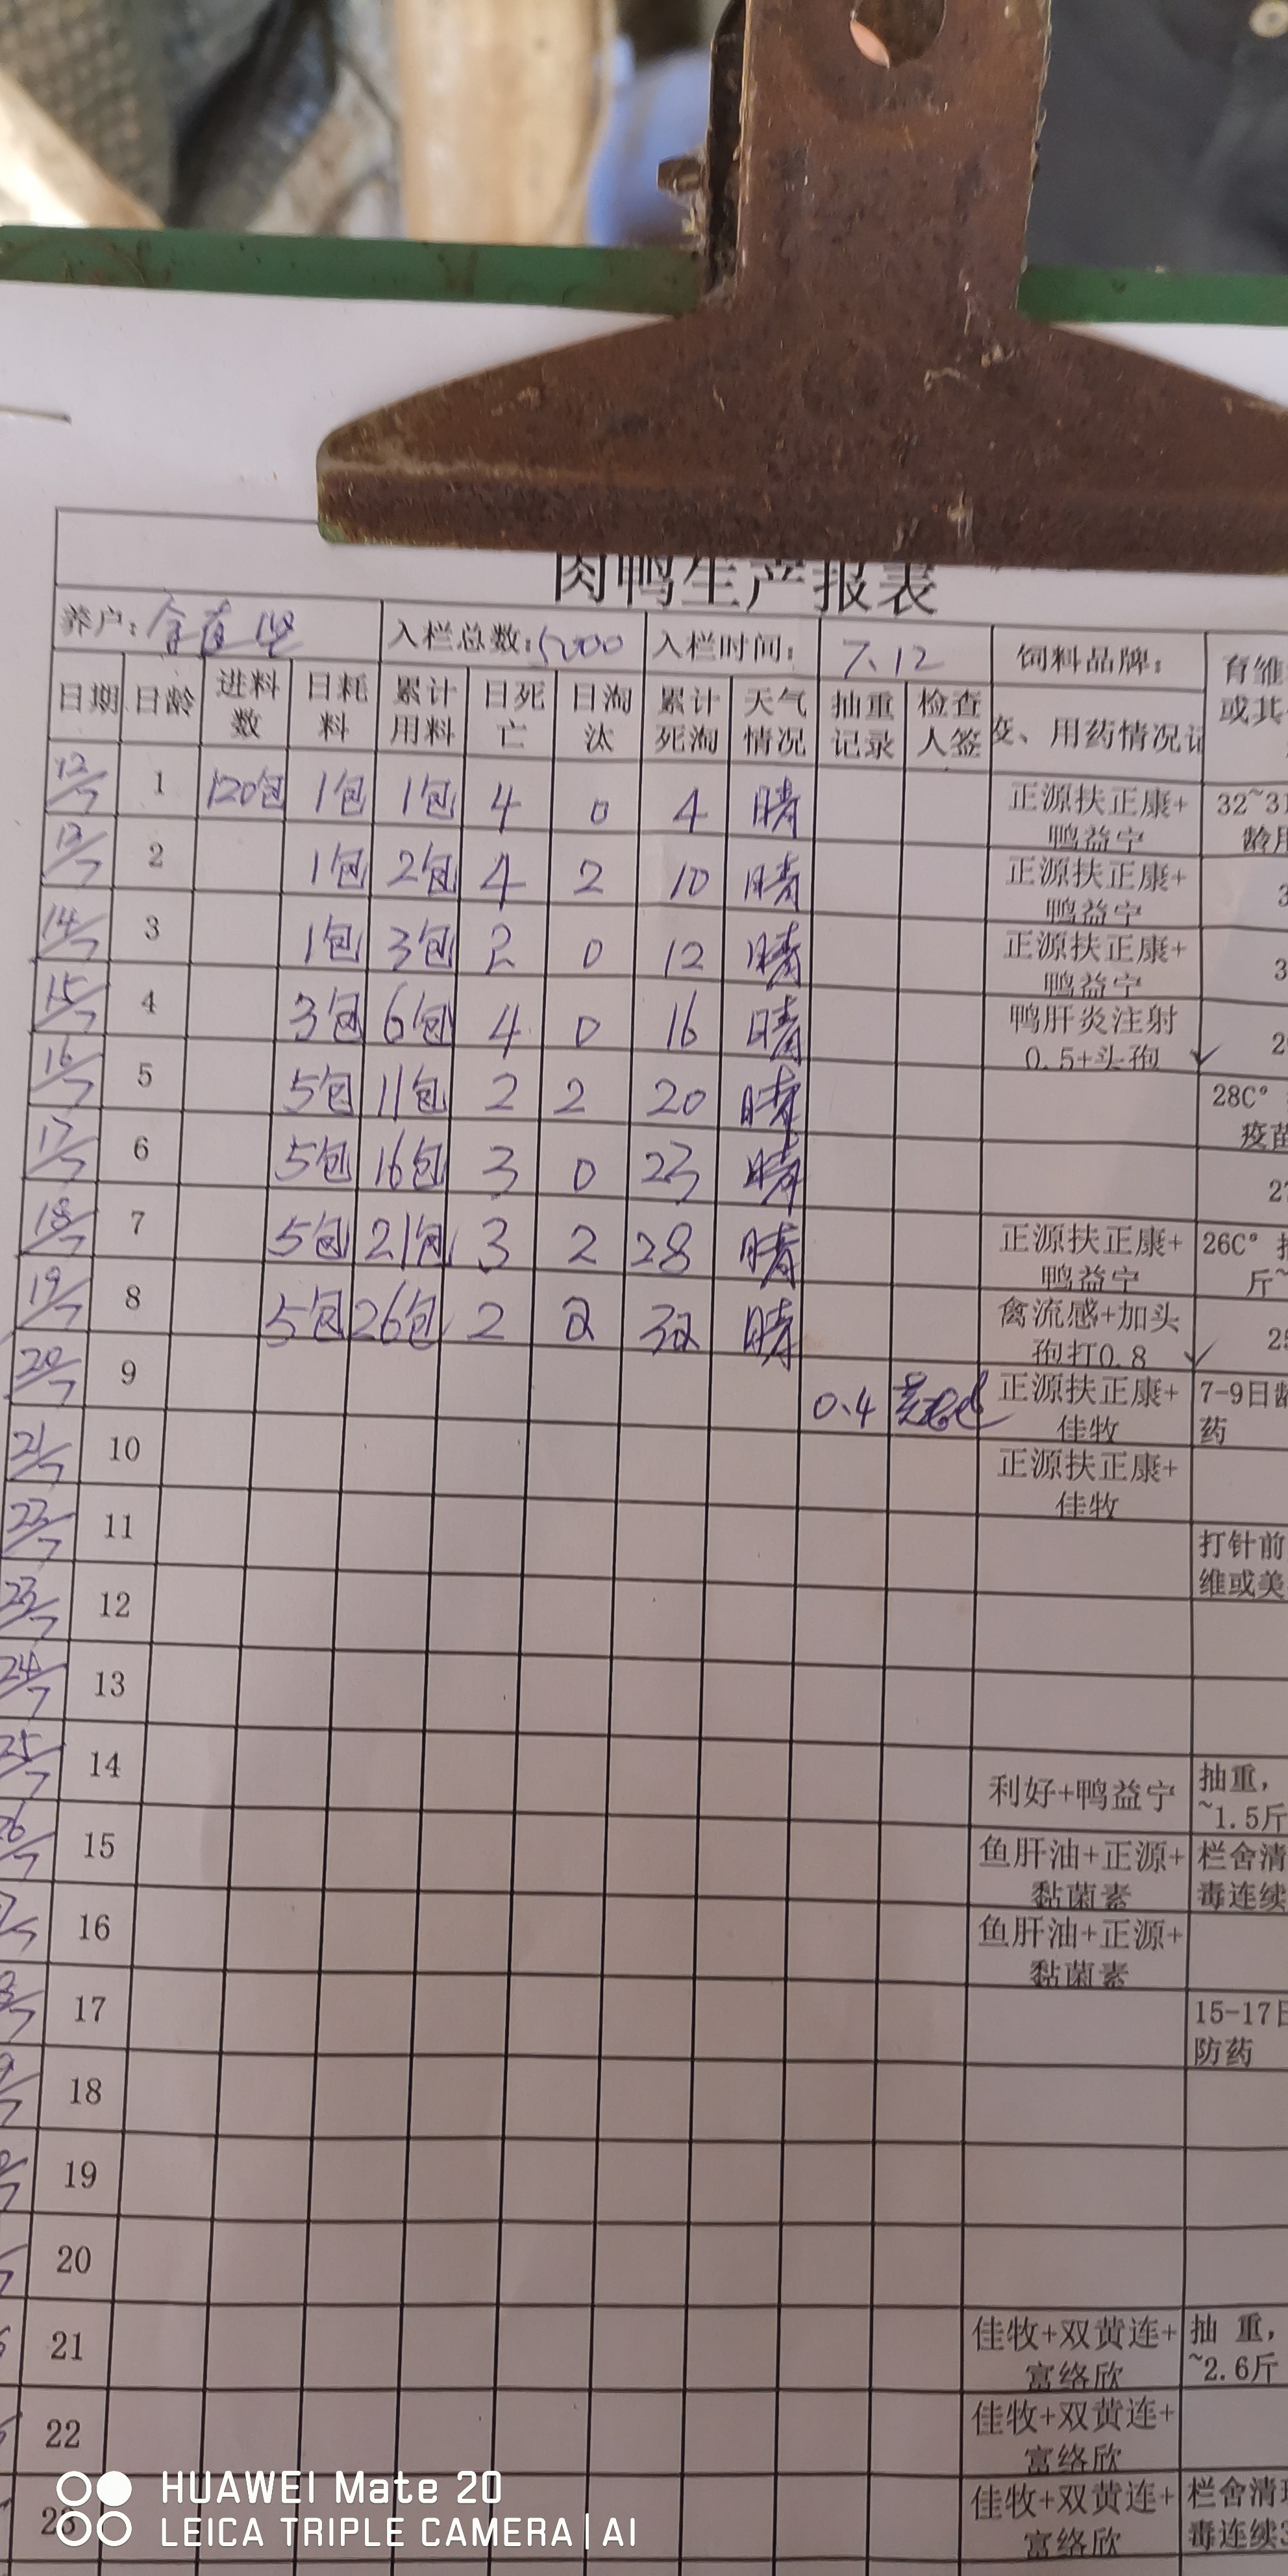 肉鸭生产报表
养户: 入栏总数:5000 入栏时间: 7.12 饲料品牌: 育雏
日期 日龄 进料数 日耗料 累计用料 日死亡 日淘汰 累计死淘 天气情况 抽重记录 检查人签 、用药情况 或其
12/7 1 120包 1包 1包 4 0 4 晴 正源扶正康+鸭益宁 32~31 龄用
13/7 2 1包 2包 4 2 10 晴 正源扶正康+鸭益宁 3
14/7 3 1包 3包 2 0 12 晴 正源扶正康+鸭益宁 3
15/7 4 3包 6包 4 0 16 晴 鸭肝炎注射0.5+头孢 ✓ 2
16/7 5 5包 11包 2 2 20 晴 28C° 疫苗
17/7 6 5包 16包 3 0 23 晴 27
18/7 7 5包 21包 3 2 28 晴 正源扶正康+鸭益宁 26C° 斤~
19/7 8 5包 26包 2 2 32 晴 禽流感+加头孢打0.8 ✓ 25
20/7 9 0.4 正源扶正康+佳牧 7-9日龄 药
21/7 10 正源扶正康+佳牧
22/7 11 打针前 维或美
23/7 12
24/7 13
25/7 14 利好+鸭益宁 抽重, ~1.5斤
26/7 15 鱼肝油+正源+黏菌素 栏舍清 毒连续
16 鱼肝油+正源+黏菌素
17 15-17日 防药
18
19
20
21 佳牧+双黄连+富络欣 抽 重, ~2.6斤
22 佳牧+双黄连+富络欣
23 佳牧+双黄连+富络欣 栏舍清 毒连续
HUAWEI Mate 20
LEICA TRIPLE CAMERA | AI